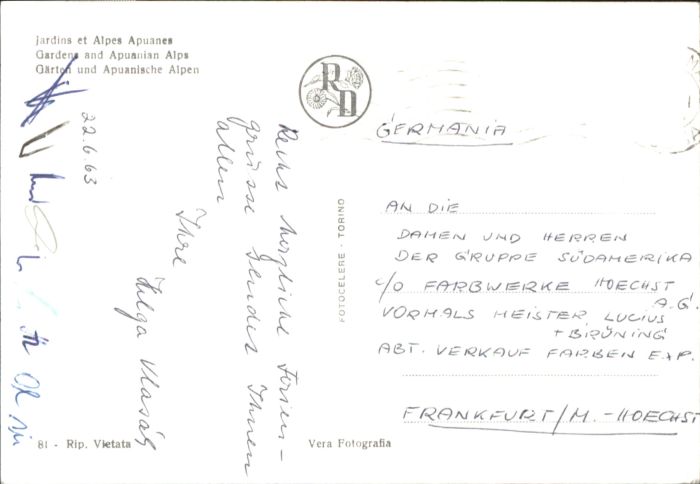 Jardins et Alpes Apuanes
Gardens and Apuanian Alps
Gärten und Apuanische Alpen
22.6.63
Recht herzliche Ferien-
grüsse sendet Ihnen
allen
Ihre
Helga
RD
FOTOCELERE - TORINO
GERMANIA
AN DIE
DAMEN UND HERREN
DER GRUPPE SÜDAMERIKA
c/o FARBWERKE HOECHST
A.G.
VORMALS MEISTER LUCIUS
+ BRÜNING
ABT. VERKAUF FARBEN EXP.
FRANKFURT/M. - HOECHST
81 - Rip. Vietata
Vera Fotografia